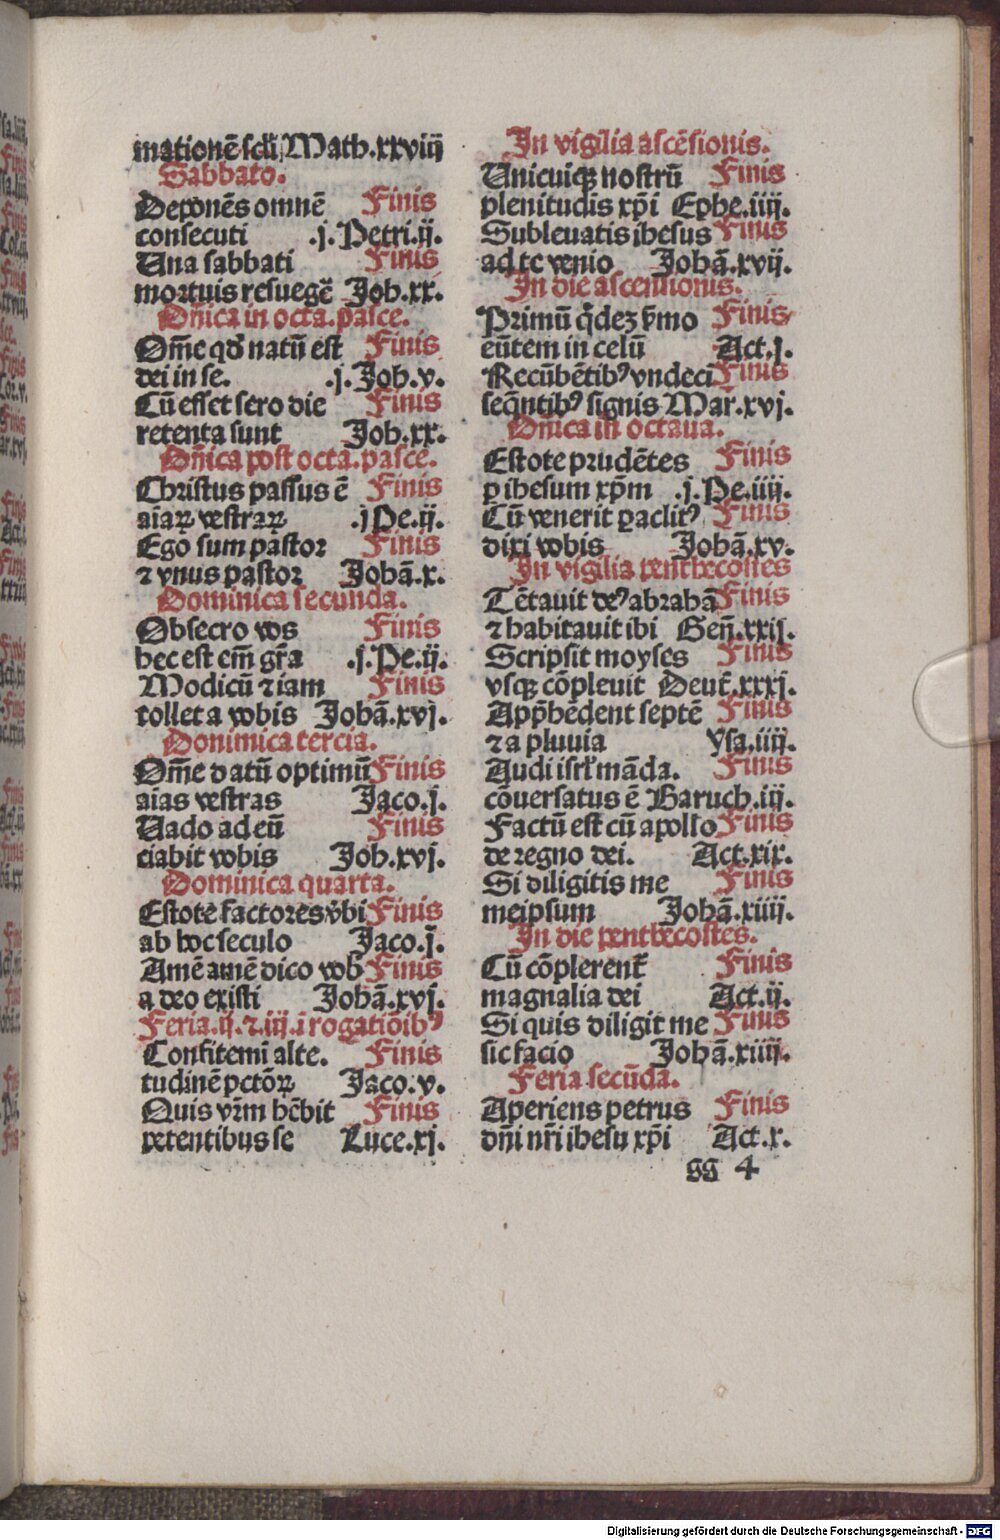 mationē scłi Math.xxviij
Sabbato.
Deponēs omnē Finis
consecuti .j.Petri.ij.
Una sabbati Finis
mortuis resuegē Joh.xx.
Dn̄ica in octa.pasce.
Om̄e qd̛ natū est Finis
dei in se. .j.Joh.v.
Cū esset sero die Finis
retenta sunt Joh.xx.
Dn̄ica post octa.pasce.
Christus passus ē Finis
aīaꝝ vestraꝝ .jPe.ij.
Ego sum pastor Finis
⁊ vnus pastor Johā.x.
Dominica secunda.
Obsecro vos Finis
hec est em̄ gr̄a .j.Pe.ij.
Modicū ⁊iam Finis
tollet a vobis Johā.xvj.
Donimica tercia.
Om̄e datū optimū Finis
aīas vestras Jaco.j.
Uado ad eū Finis
ciabit vobis Joh.xvj.
Dominica quarta.
Estote factores v̄bi Finis
ab hoc seculo Jaco.j.
Amē amē dico vob Finis
a deo existi Johā.xvj.
Feria.ij.⁊.iij.ī rogatiōibꝰ
Confitemī alte. Finis
tudinē pctōꝝ Jaco.v.
Quis vr̄m hēbit Finis
petentibus se Luce.xj.
In vigilia ascēsionis.
Unicuiqꝫ nostrū Finis
plenitudis xp̄i Ephe.iiij.
Subleuatis ihesus Finis
ad te venio Johā.xvij.
In die ascensionis.
Primū q̇dez ẜmo Finis
eūtem in celū Act.j.
Recūbētibꝰ vndeci Finis
seq̄ntibꝰ signis Mar.xvj.
Dn̄ica in octaua.
Estote prudētes Finis
ꝑ ihesum xp̄m .j.Pe.iiij.
Cū venerit ꝑaclitꝰ Finis
dixi vobis Johā.xv.
In vigilia penthecostes
Tētauit deꝰ abrahā Finis
⁊ habitauit ibi Gen̄.xxij.
Scripsit moyses Finis
vsqꝫ cōpleuit Deut̄.xxxj.
App̄hēdent septē Finis
⁊ a pluuia Ysa.iiij.
Audi isrł māda. Finis
cōuersatus ē Baruch.iij.
Factū est cū apollo Finis
de regno dei. Act.xix.
Si diligitis me Finis
meipsum Johā.xiiij.
In die penthecostes.
Cū cōplerent̄ Finis
magnalia dei Act.ij.
Si quis diligit me Finis
sic facio Johā.xiiij.
Feria secūda.
Aperiens petrus Finis
dn̄i nr̄i ihesu xp̄i Act.x.
gg 4
Digitalisierung gefördert durch die Deutsche Forschungsgemeinschaft - DFG